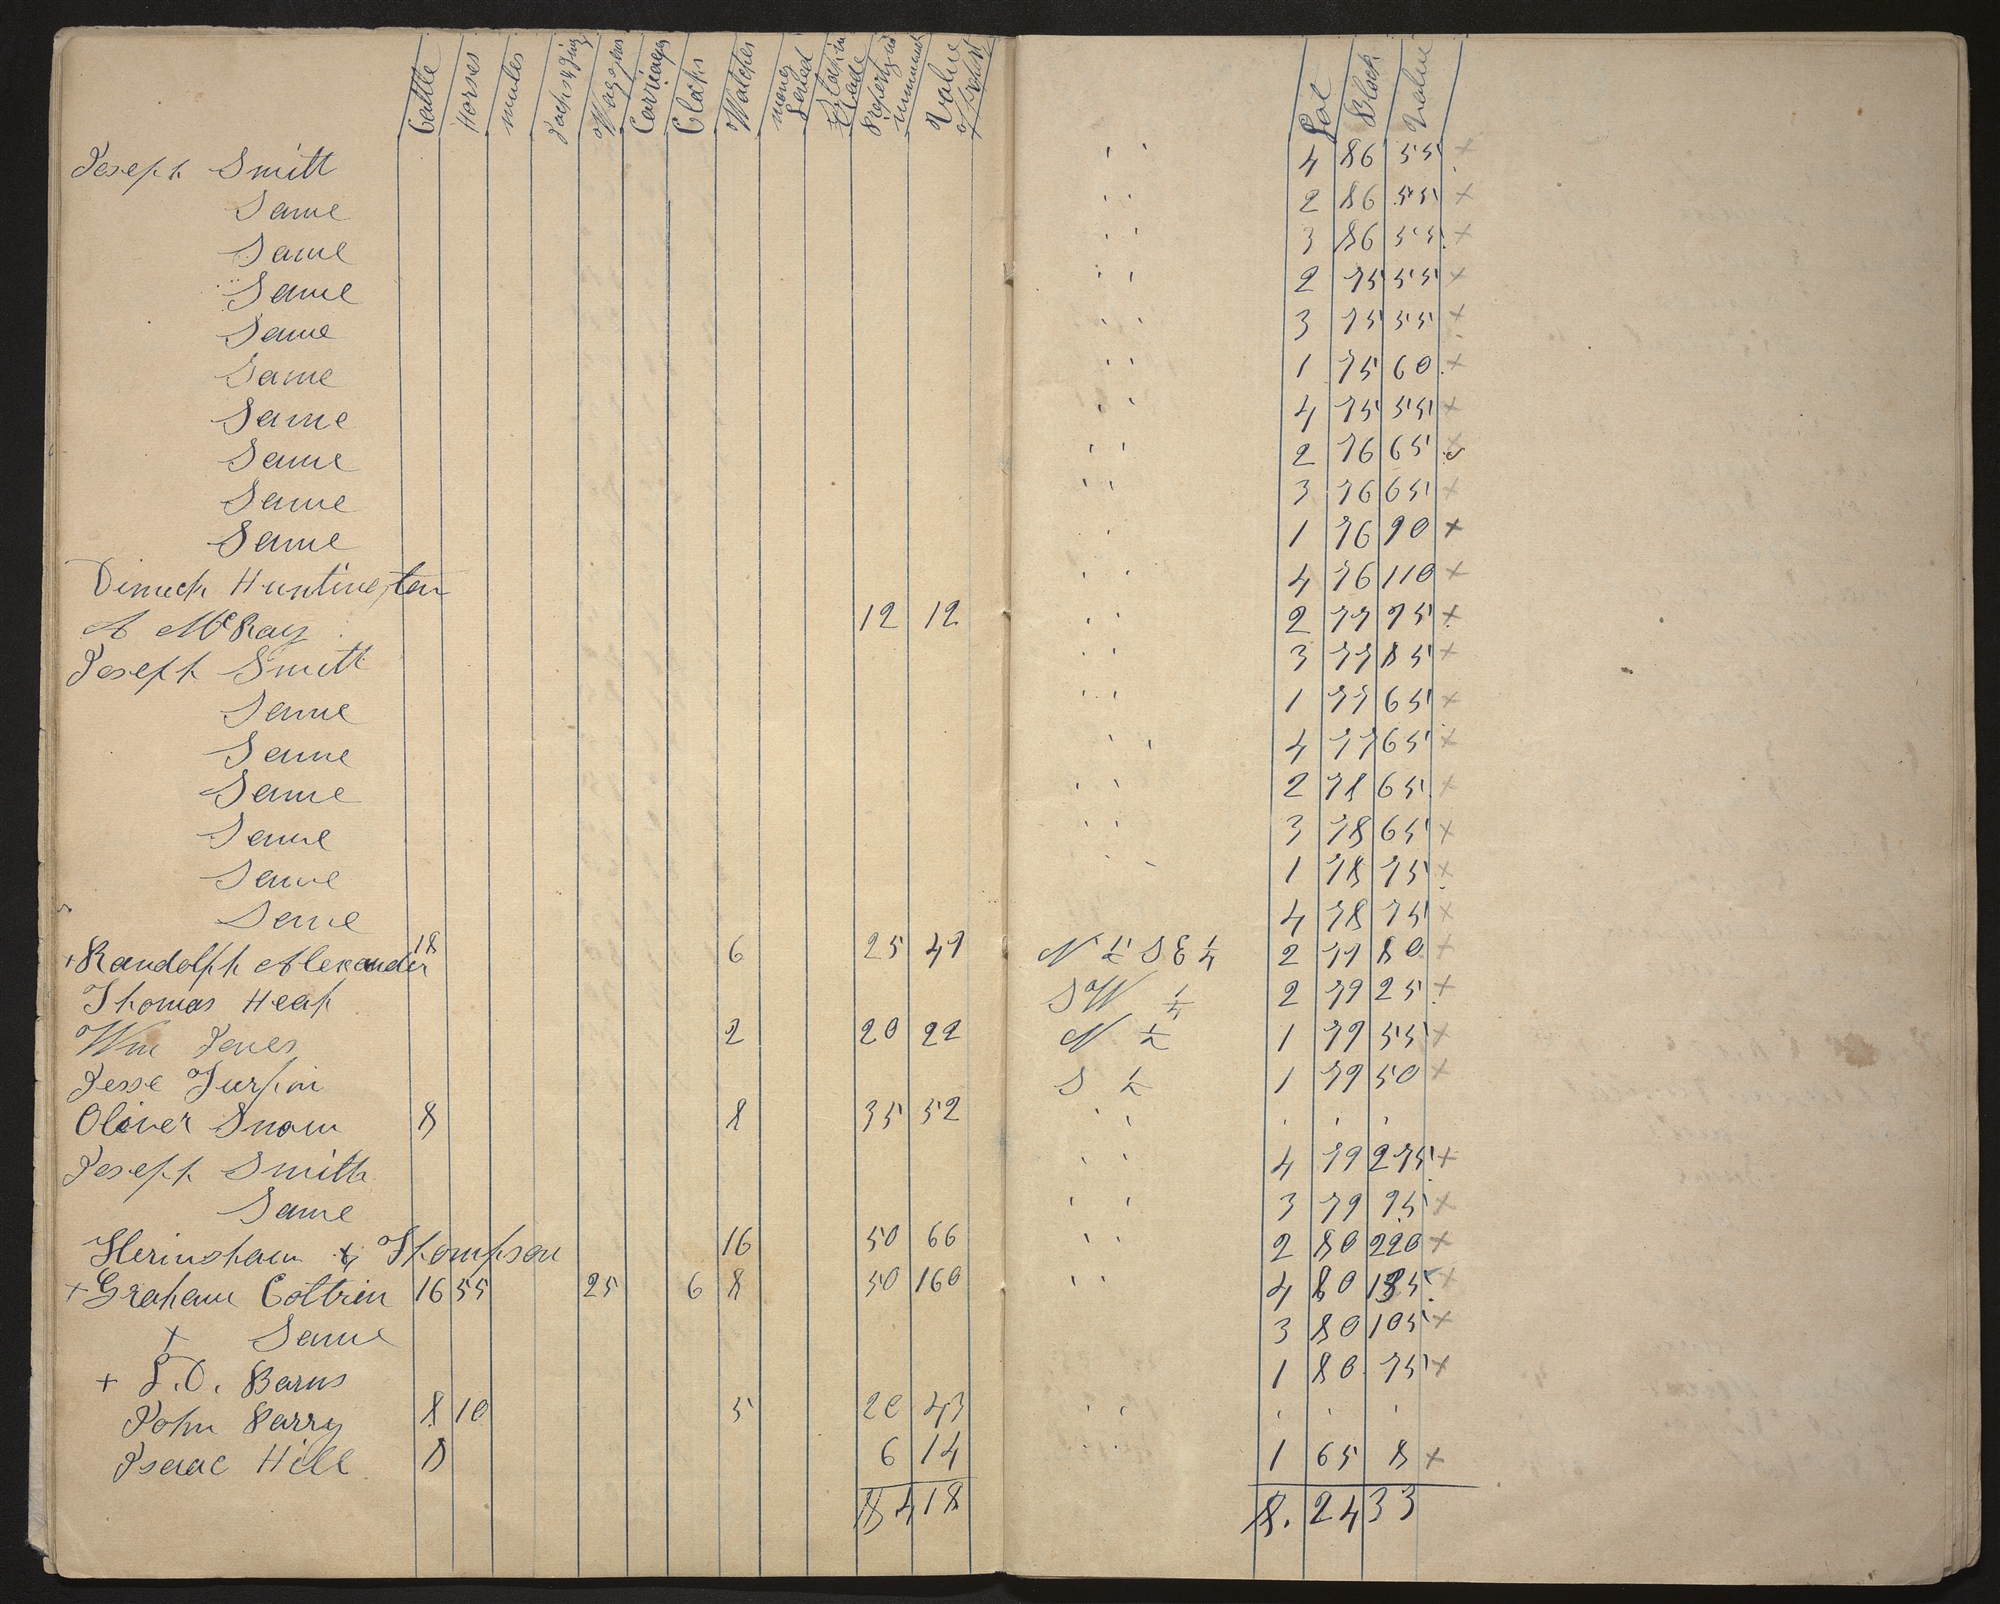 Cattle Horses mules Jacks & Jinnys Waggons Carriages Clocks Watches money Loaned Stock in Trade Property not enumerated Value of Personal Lot Block Value
Joseph Smith ' ' 4 86 55 +
Same ' ' 2 86 55 +
Same ' ' 3 86 55 +
Same ' ' 2 75 55 +
Same ' ' 3 75 55 +
Same ' ' 1 75 60 +
Same ' ' 4 75 55 +
Same ' ' 2 76 65
Same ' ' 3 76 65 +
Same ' 1 76 90 +
Dimick Huntington ' ' 4 76 110 +
A McRay 12 12 ' ' 2 77 75 +
Joseph Smith ' ' 3 77 85 +
Same ' ' 1 77 65 +
Same ' ' 4 77 65 +
Same ' ' 2 78 65 +
Same ' ' 3 78 65 +
Same ' ' 1 78 75 +
Same 4 78 75 +
+ Randolph Alexander 18 6 25 49 N ½ S E ¼ 2 79 80 +
Thomas Heap S W ¼ 2 79 25 +
Wm Jones 2 20 22 N ½ 1 79 55 +
Jesse Turpin S ½ 1 79 50 +
Oliver Snow 8 8 35 52 ' ' ' ' '
Joseph Smith ' ' 4 79 275 +
Same ' ' 3 79 95 +
Herinsham & Thompson 16 50 66 ' ' 2 80 220 +
+ Graham Coltrin 16 55 25 6 8 50 160 ' ' 4 80 185 +
+ Same 3 80 105 +
+ L.D. Barns 1 80 75 +
John Parry 8 10 5 20 43 ' ' ' ' '
Isaac Hill 8 6 14 ' ' 1 65 8 +
$ 418 $. 2433